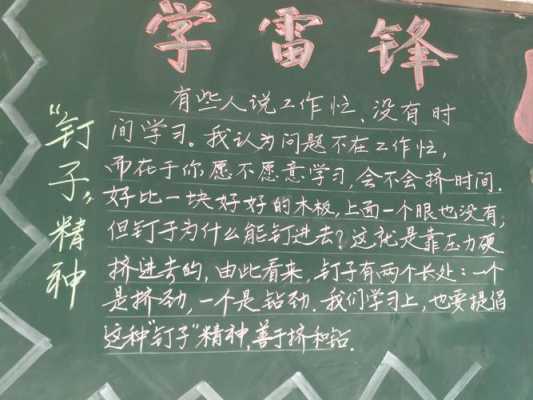 学雷锋
"钉子"精神
有些人说工作忙、没有时
间学习。我认为问题不在工作忙,
而在于你愿不愿意学习,会不会挤时间.
好比一块好好的木板,上面一个眼也没有,
但钉子为什么能钉进去?这就是靠压力硬
挤进去的,由此看来,钉子有两个长处:一个
是挤劲,一个是钻劲.我们学习上,也要提倡
这种"钉子"精神,善于挤和钻.